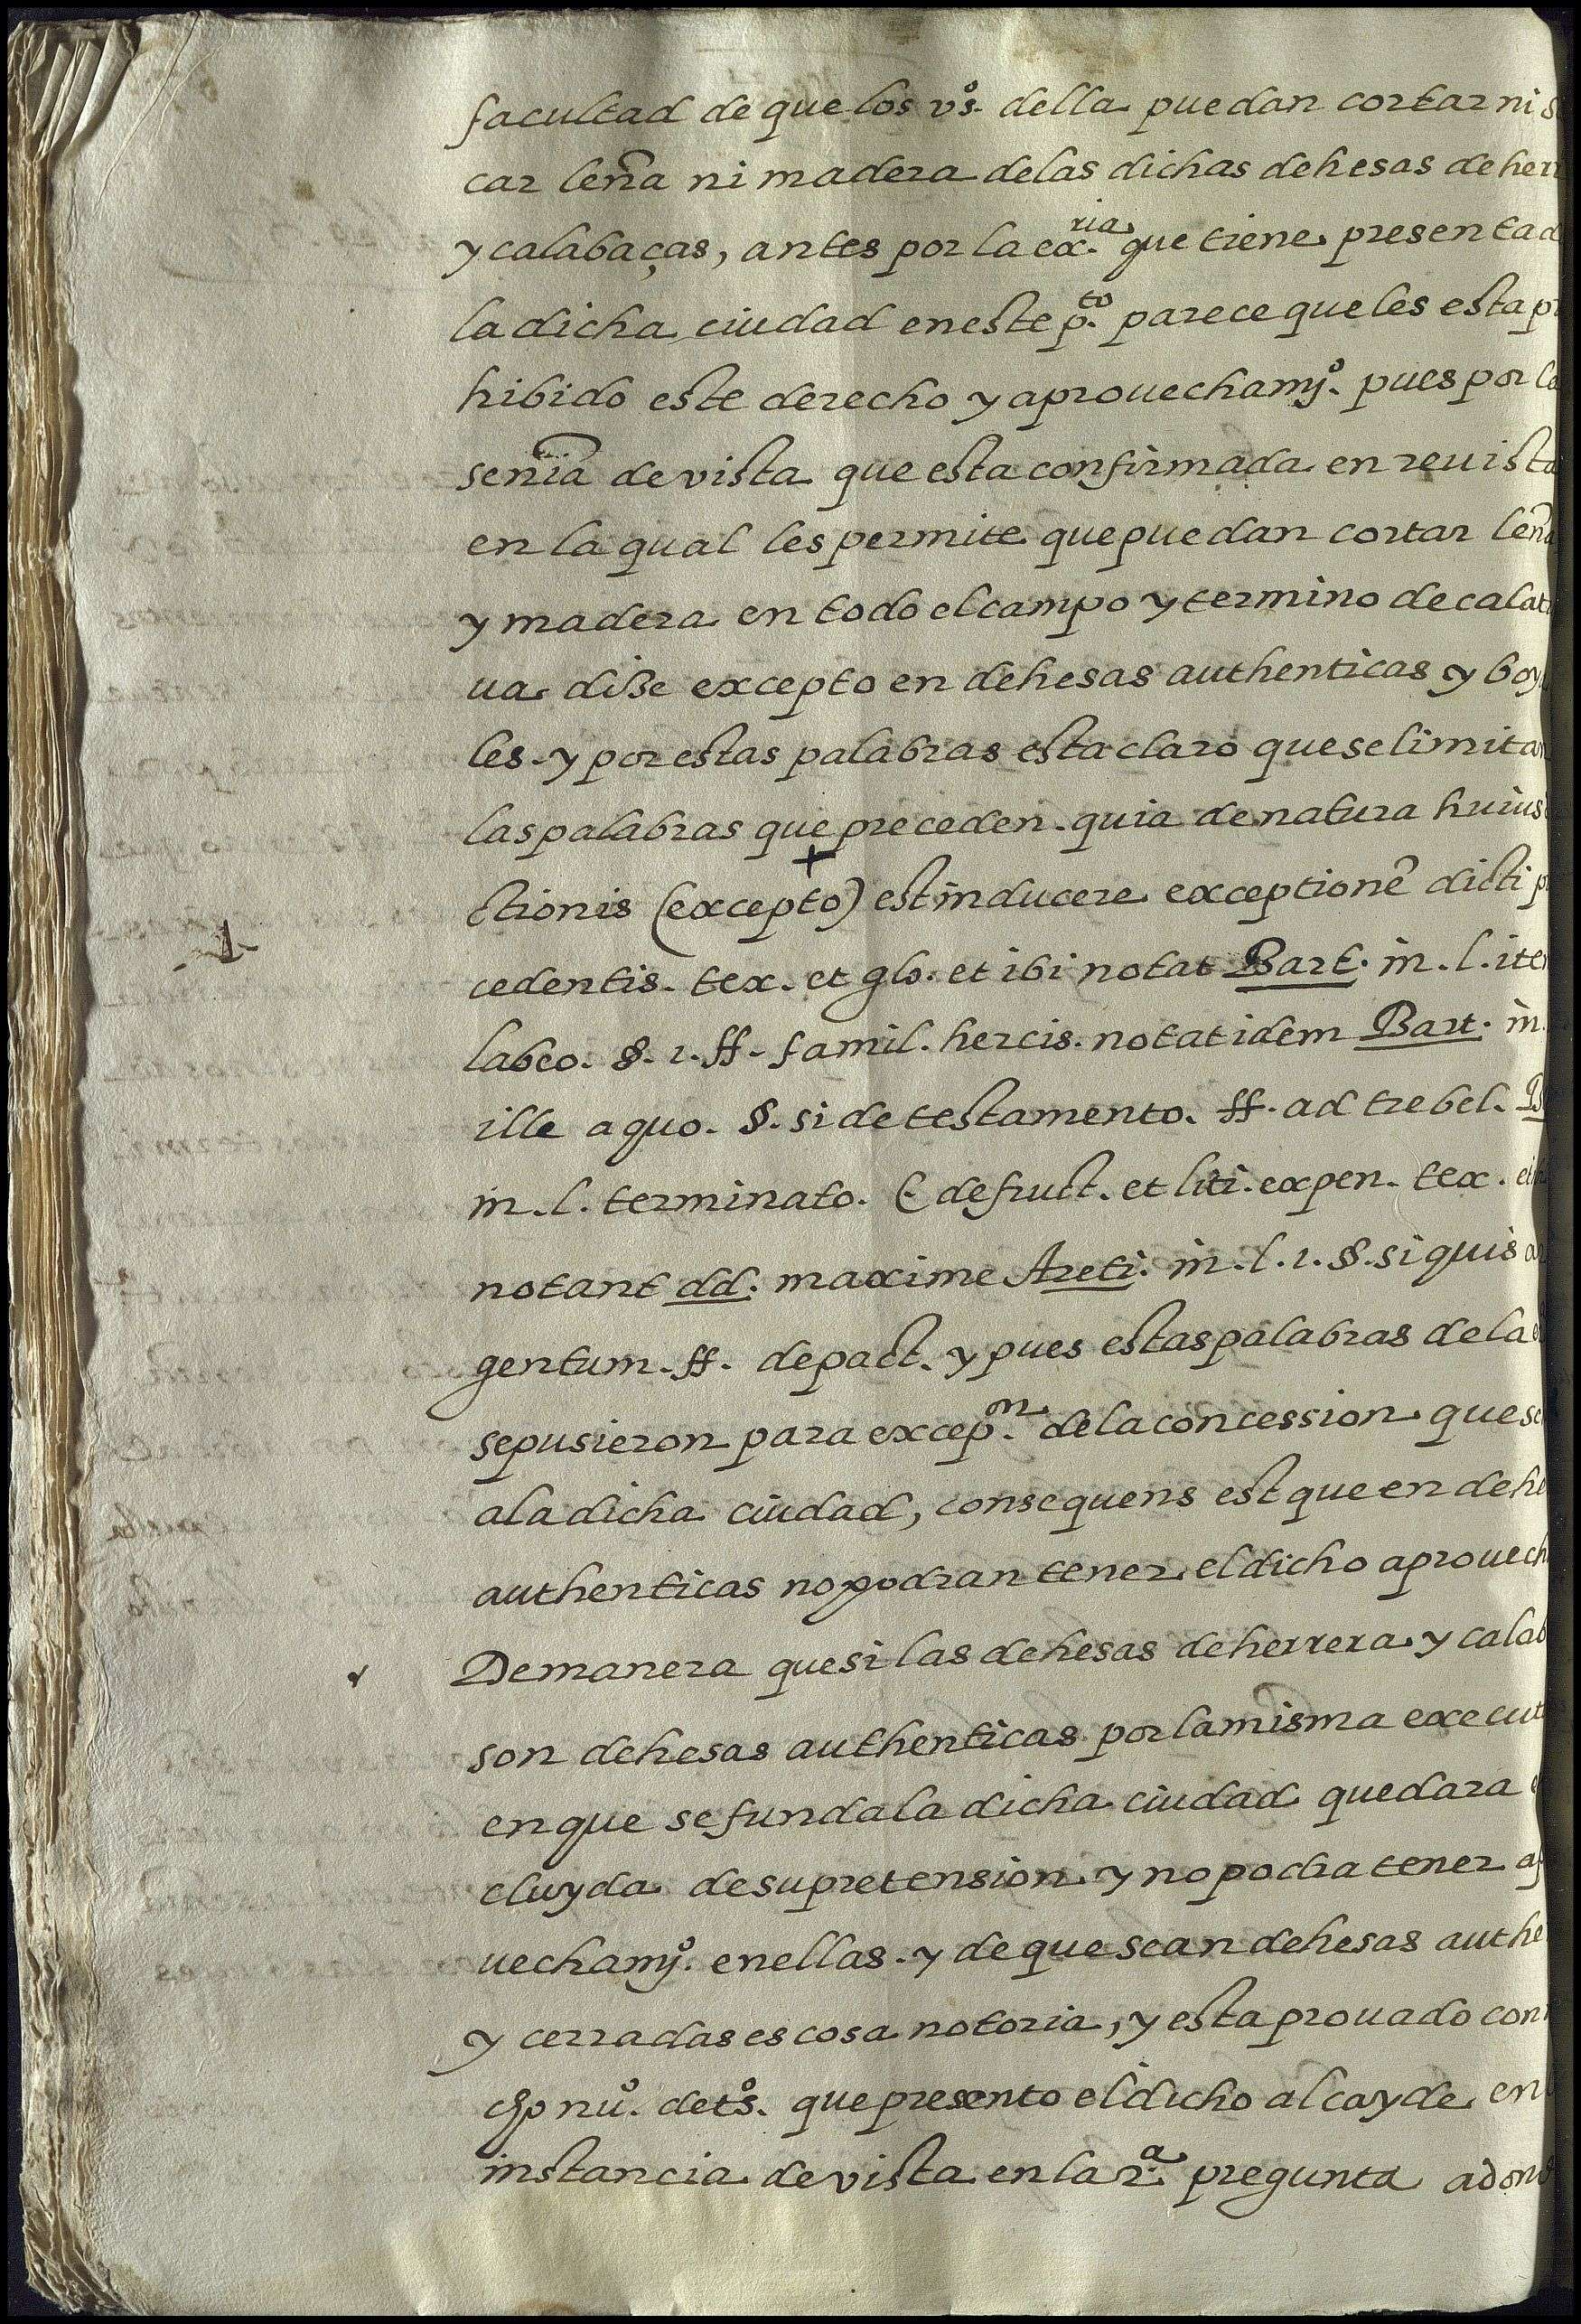 facultad de que los vº̣s. della puedan cortar ni s
car leña ni madera delas dichas dehesas de herr
y calabaças, antes por la ex.ria que tiene presentad
la dicha ciudad en este p.to parece que les esta p
hibido este derecho y aprouechamjº. pues por la
senia de vista que esta confirmada en reuista
en la qual les permite que puedan cortar leña
y madera en todo el campo y termino de calat
ua dize excepto en dehesas authenticas y boy
les. y por estas palabras esta claro que se limitan
las palabras que preceden. quia de natura huius
+
ctionis (excepto) est inducere exceptionē dicti p
cedentis. tex. et glo. et ibi notat Bart. in. l. ite
labeo. §. 1. ff. famil. hercis. notat idem Bart. in.
ille a quo. §. si de testamento. ff. ad trebel. B
in. l. terminato. C de fruct. et liti. expen. tex. et
notant dd. maxime Areti. in. l. 1. §. si quis ar
gentum. ff. de pact. y pues estas palabras de la
se pusieron para excep.on de la concession que se
a la dicha ciudad, consequens est que en dehe
authenticas no podran tener el dicho aprouech
De manera que si las dehesas de herrera y calab
son dehesas authenticas por la misma execut
en que se funda la dicha ciudad quedara e
cluyda de su pretension y no podra tener ap
uechamjº. en ellas. y de que sean dehesas authe
y cerradas es cosa notoria, y esta prouado con
nuº. de tºs. que presento el dicho alcayde en
instancia de vista en la 2.a pregunta adond